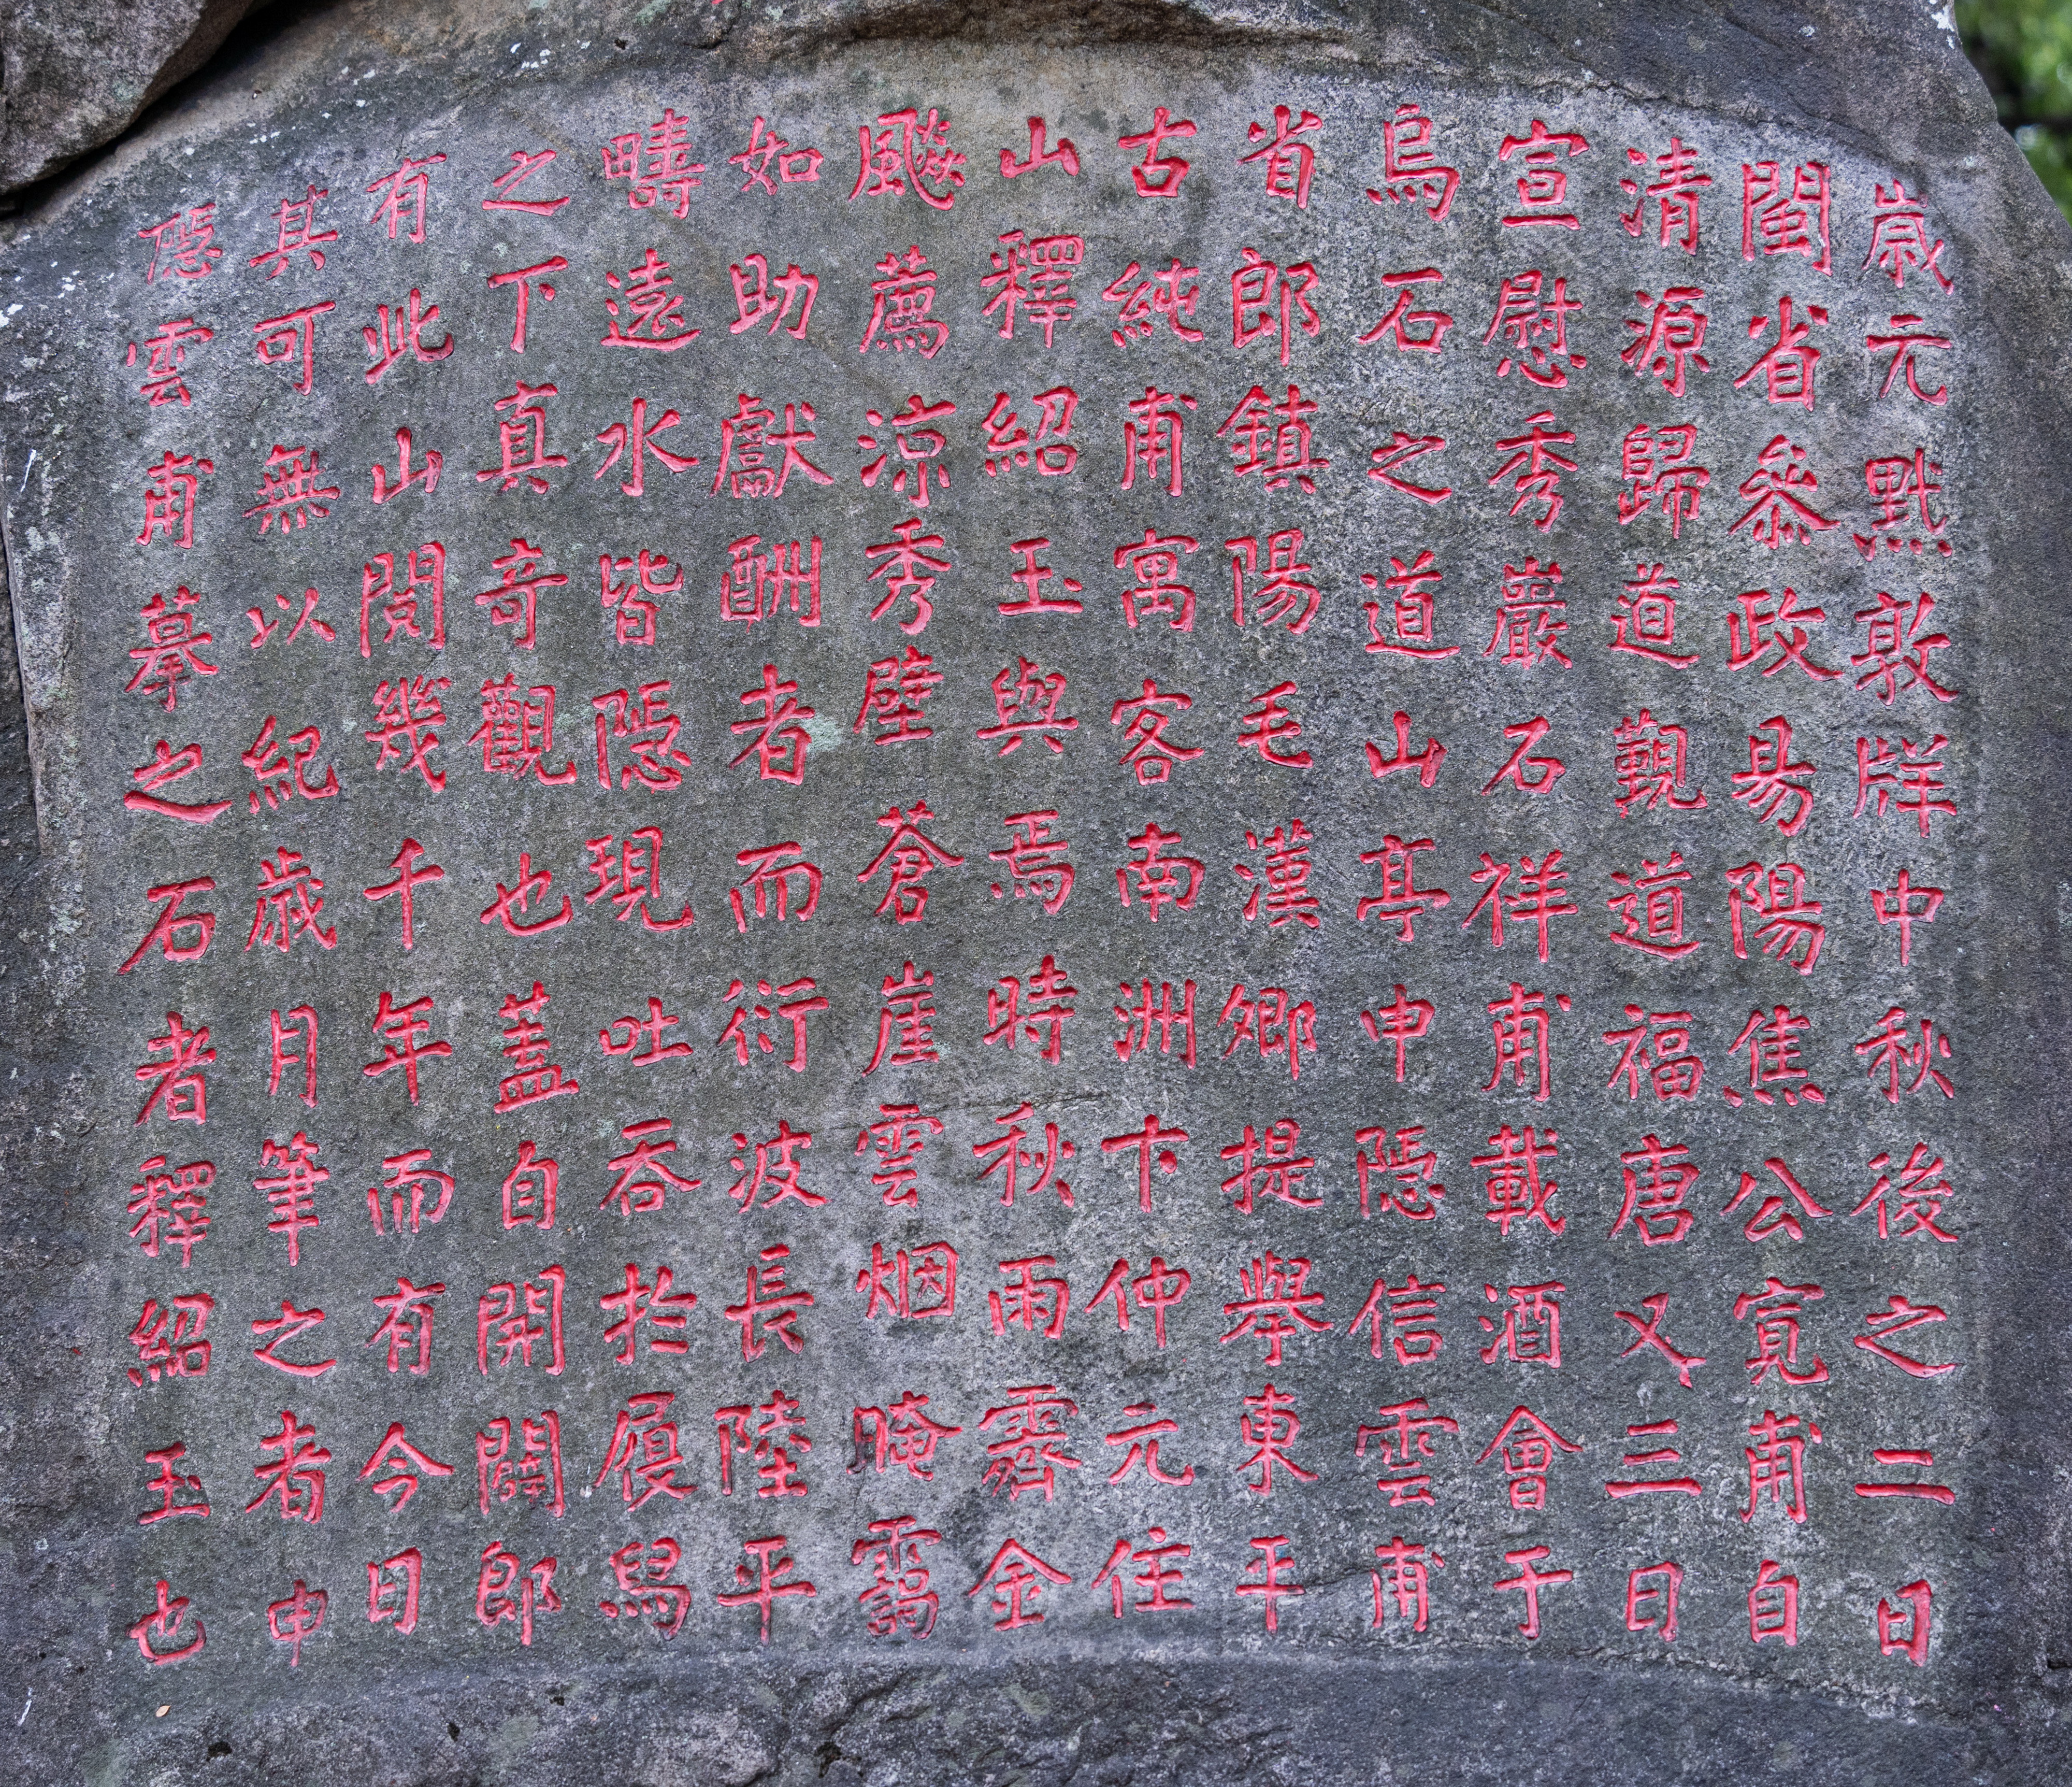 歲元黓敦牂中秋後之二日
閩省叅政昜陽焦公寛甫自
清源歸道觀道福唐又三日
宣慰秀巖石祥甫載酒會于
烏石之道山亭申隱信雲甫
省郎鎮陽毛漢卿提舉東平
古純甫寓客南洲卞仲元住
山釋紹玉與焉時秋雨霽金
飈薦涼秀壁蒼崖雲烟晻靄
如助獻酬者而衍波長陸平
疇遠水皆隱現吐吞於屐舄
之下真奇觀也蓋自開闢郎
有此山閱幾千年而有今日
其可無以紀歲月筆之者申
隱雲甫摹之石者釋紹玉也